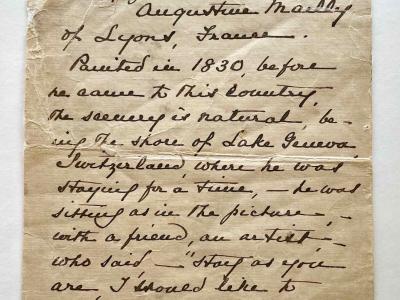 Augustine Mailly
of Lyons, France.
Painted in 1830, before
he came to this country,
the scenery is natural, be-
ing the shore of Lake Geneva,
Switzerland, where he was
staying for a time, – he was
sitting as in the picture, –
with a friend, an artist –
who said, – "Stay as you
are, I would like to